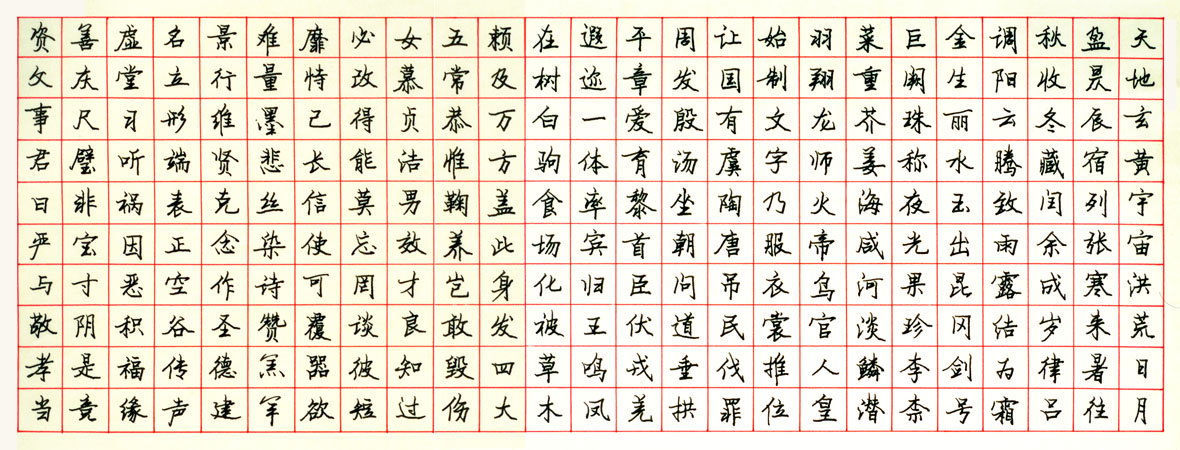 天地玄黄宇宙洪荒日月
盈昃辰宿列张寒来暑往
秋收冬藏闰余成岁律吕
调阳云腾致雨露结为霜
金生丽水玉出昆冈剑号
巨阙珠称夜光果珍李柰
菜重芥姜海咸河淡鳞潜
羽翔龙师火帝鸟官人皇
始制文字乃服衣裳推位
让国有虞陶唐吊民伐罪
周发殷汤坐朝问道垂拱
平章爱育黎首臣伏戎羌
遐迩一体率宾归王鸣凤
在树白驹食场化被草木
赖及万方盖此身发四大
五常恭惟鞠养岂敢毁伤
女慕贞洁男效才良知过
必改得能莫忘罔谈彼短
靡恃己长信使可覆器欲
难量墨悲丝染诗赞羔羊
景行维贤克念作圣德建
名立形端表正空谷传声
虚堂习听祸因恶积福缘
善庆尺璧非宝寸阴是竞
资父事君曰严与敬孝当